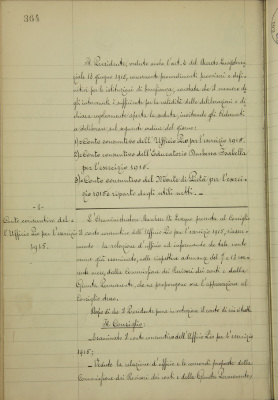 364
Il Presidente, veduto anche l'art. 4 del Decreto Luogotenen-
ziale 18 giugno 1916, concernente provvedimenti provvisori e defi-
nitivi per le istituzioni di beneficenza, constatato che il numero de-
gli intervenuti è sufficiente per la validità delle deliberazioni e di-
chiara regolarmente aperta la seduta, invitando gli adunati
a deliberare sul seguente ordine del giorno:
1) Conto consuntivo dell'Ufficio Pio per l'esercizio 1915.
2) Conto consuntivo dell'Educatorio Duchessa Isabella
per l'esercizio 1915.
3) Conto consuntivo del Monte di Pietà per l'eserci-
zio 1915 e riparto degli utili netti. —
- 1 -
Conto consuntivo del-
l'Ufficio Pio per l'esercizio
1915.
L'Amministratore presenta al Consiglio
il conto consuntivo dell'Ufficio Pio per l'esercizio 1915,
la relazione d'ufficio ed informando che tale conto
venne già esaminato, nelle rispettive adunanze del
dalla Commissione dei Revisori dei conti e dalla
Giunta Permanente, che ne propongono ora l'approvazione al
Consiglio stesso.
Dopo di che il Presidente pone in votazione il conto di cui
Il Consiglio:
Esaminato il conto consuntivo dell'Ufficio Pio per l'esercizio
1915;
Vedute la relazione d'ufficio e le concordi proposte della
Commissione dei Revisori dei conti e della Giunta Permanente;